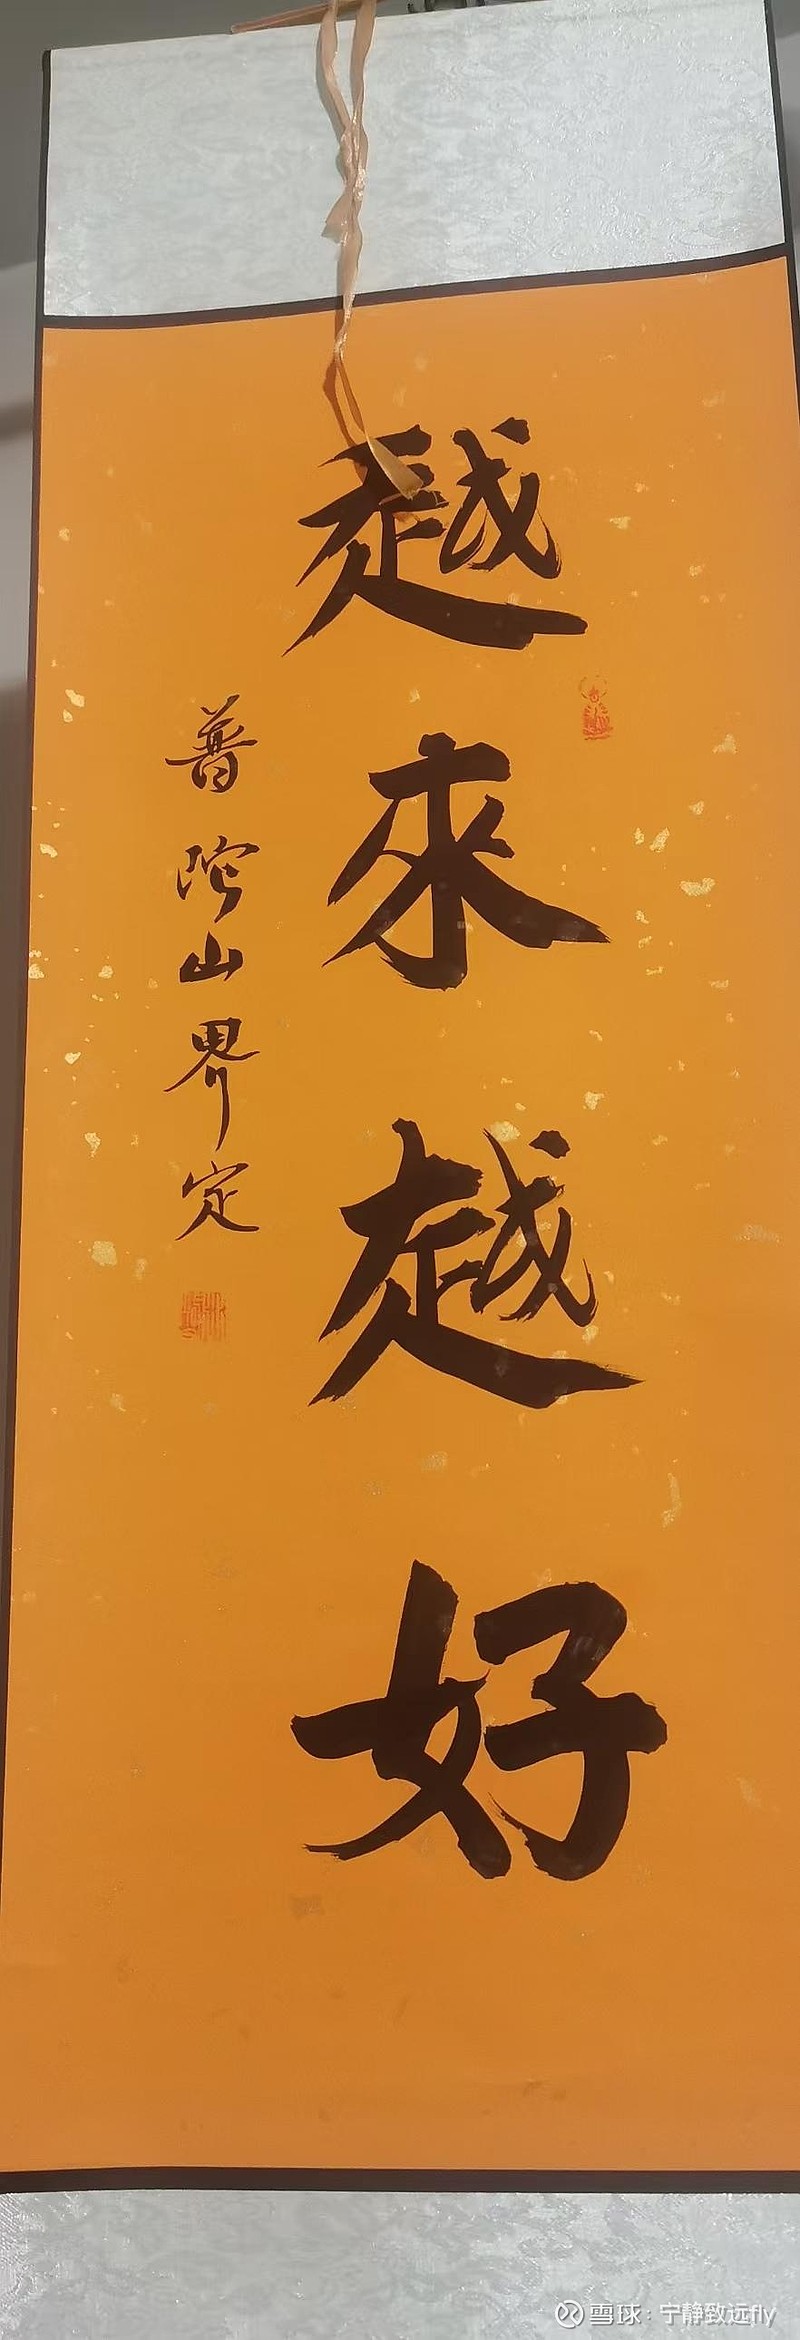 越來越好
普陀山界定
雪球：宁静致远fly